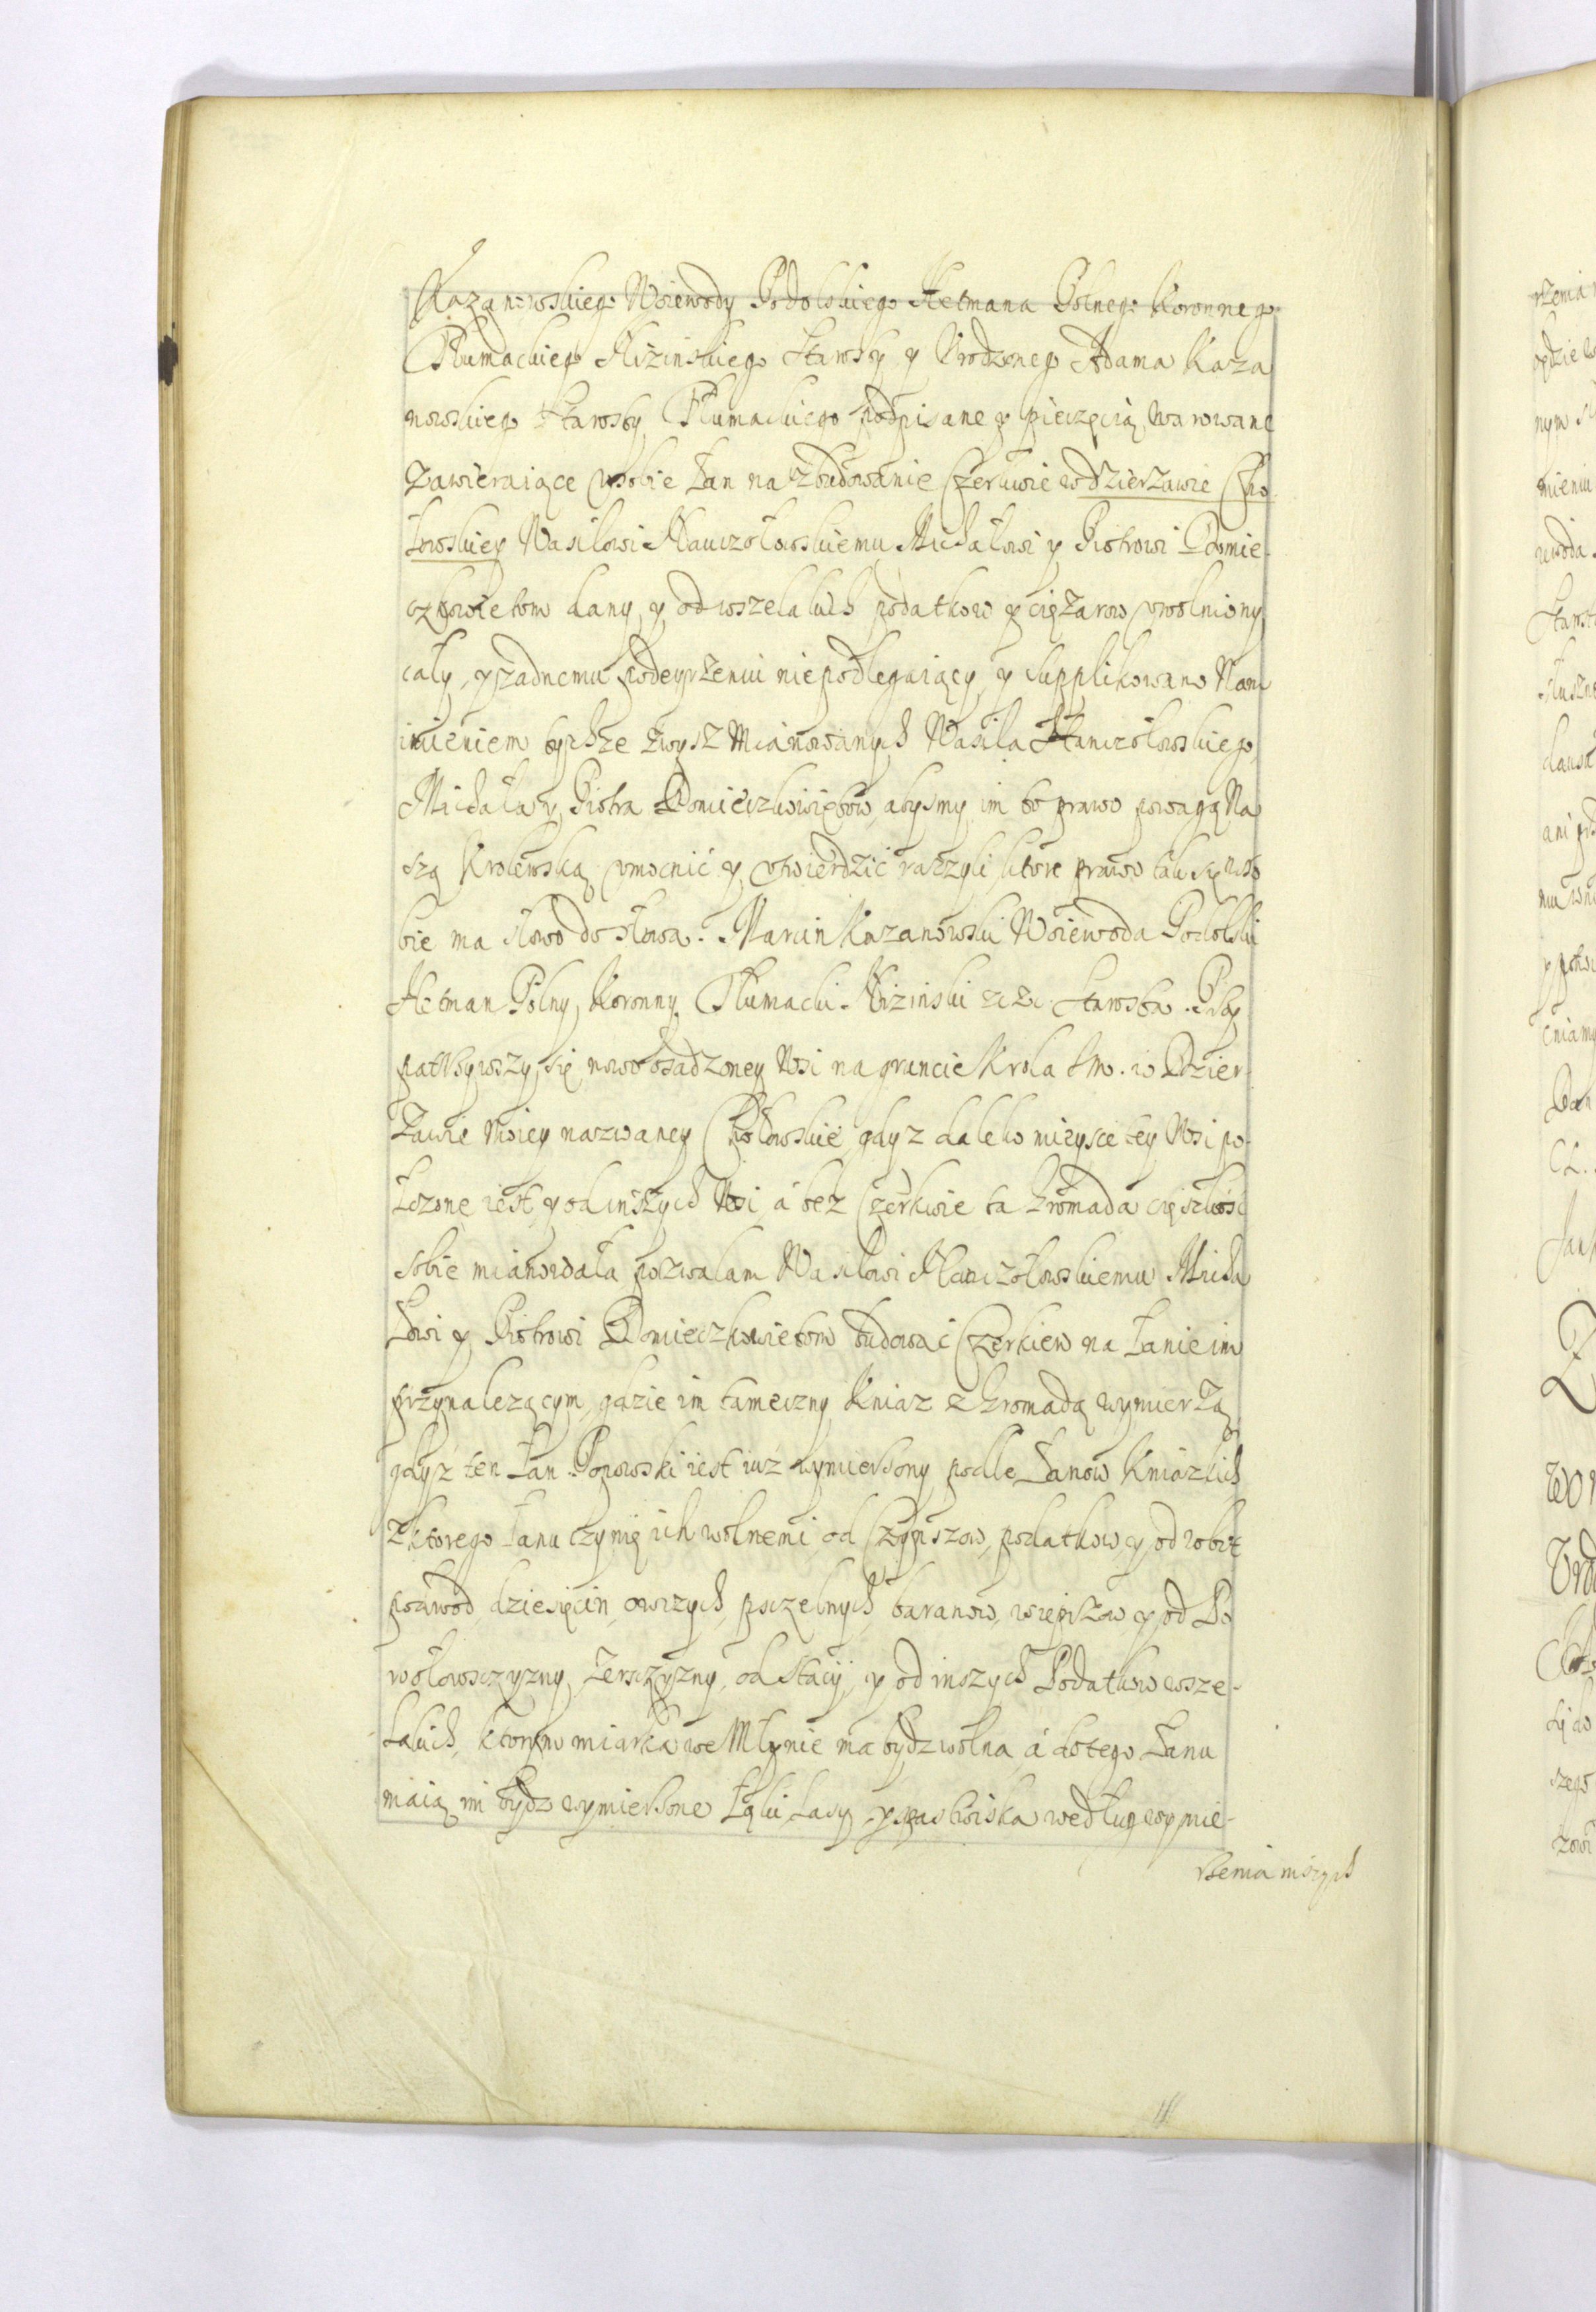 Kazanowskiego Woiewody Podolskiego Hetmana Polnego Koronnego
Tłumackiego Niżinskiego Starosty y Urodzonego Adama Kaza
nowskiego Starosty Tłumackiego podpisane y pieczęcią warowane
Zawieraiące wsobie Łan na zbudowanie Czerkwie wdzierzawie
Wasilowi Michałowi y Piotrowi Domie
dany y od wszelakich podatkow y ciężarow uwolniony
cały, y żadnemu podeyrzeniu niepodlegaiący y supplikowano Nam
imieniem tychże zwysz Mianowanych Wasila
Michała y Piotra abysmy im to prawo powagą Na
szą Krolewską umocnić y utwierdzić raczyli ktore prawo tak się wso
bie ma słowo do słowa. Marcin Kazanowski Woiewoda Podolski
Hetman Polny Koronny Tłumacki Niżinski Starosta.
patrzywszy się nowo osadzoney Wsi na gruncie Krola JMo. w Dzier
zawie moiey nazwaney gdyz daleko mieysce tey Wsi po
łozone iest y od inszych Wsi a bez Czerkwie ta Hromada cięszkość
sobie pozwalam Wasilowi Micha
łowi y Piotrowi budować Czerkiew na Łanie im
przynalezącym, gdzie im tameczny Kniaz z Hromadą wymierzą
gdyz ten Łan Popowski iest iuz wymierzony podle Łanow Kniazkich
z ktorego Łanu czynię ich wolnemi od Czynszow, podatkow, y od robot
powod, dziesięcin, owczych, pszczelnych, baranow, wieprzow y od Po
wołowszczyzny, od Stacij, y od inszych Podatkow wsze-
lakich, ktorym miarka we Młynie ma bydz wolna, a do tego Łanu
maią im bydz wymierzone Łąki Lasy y pastwiska według wymie-
rzenia inszych